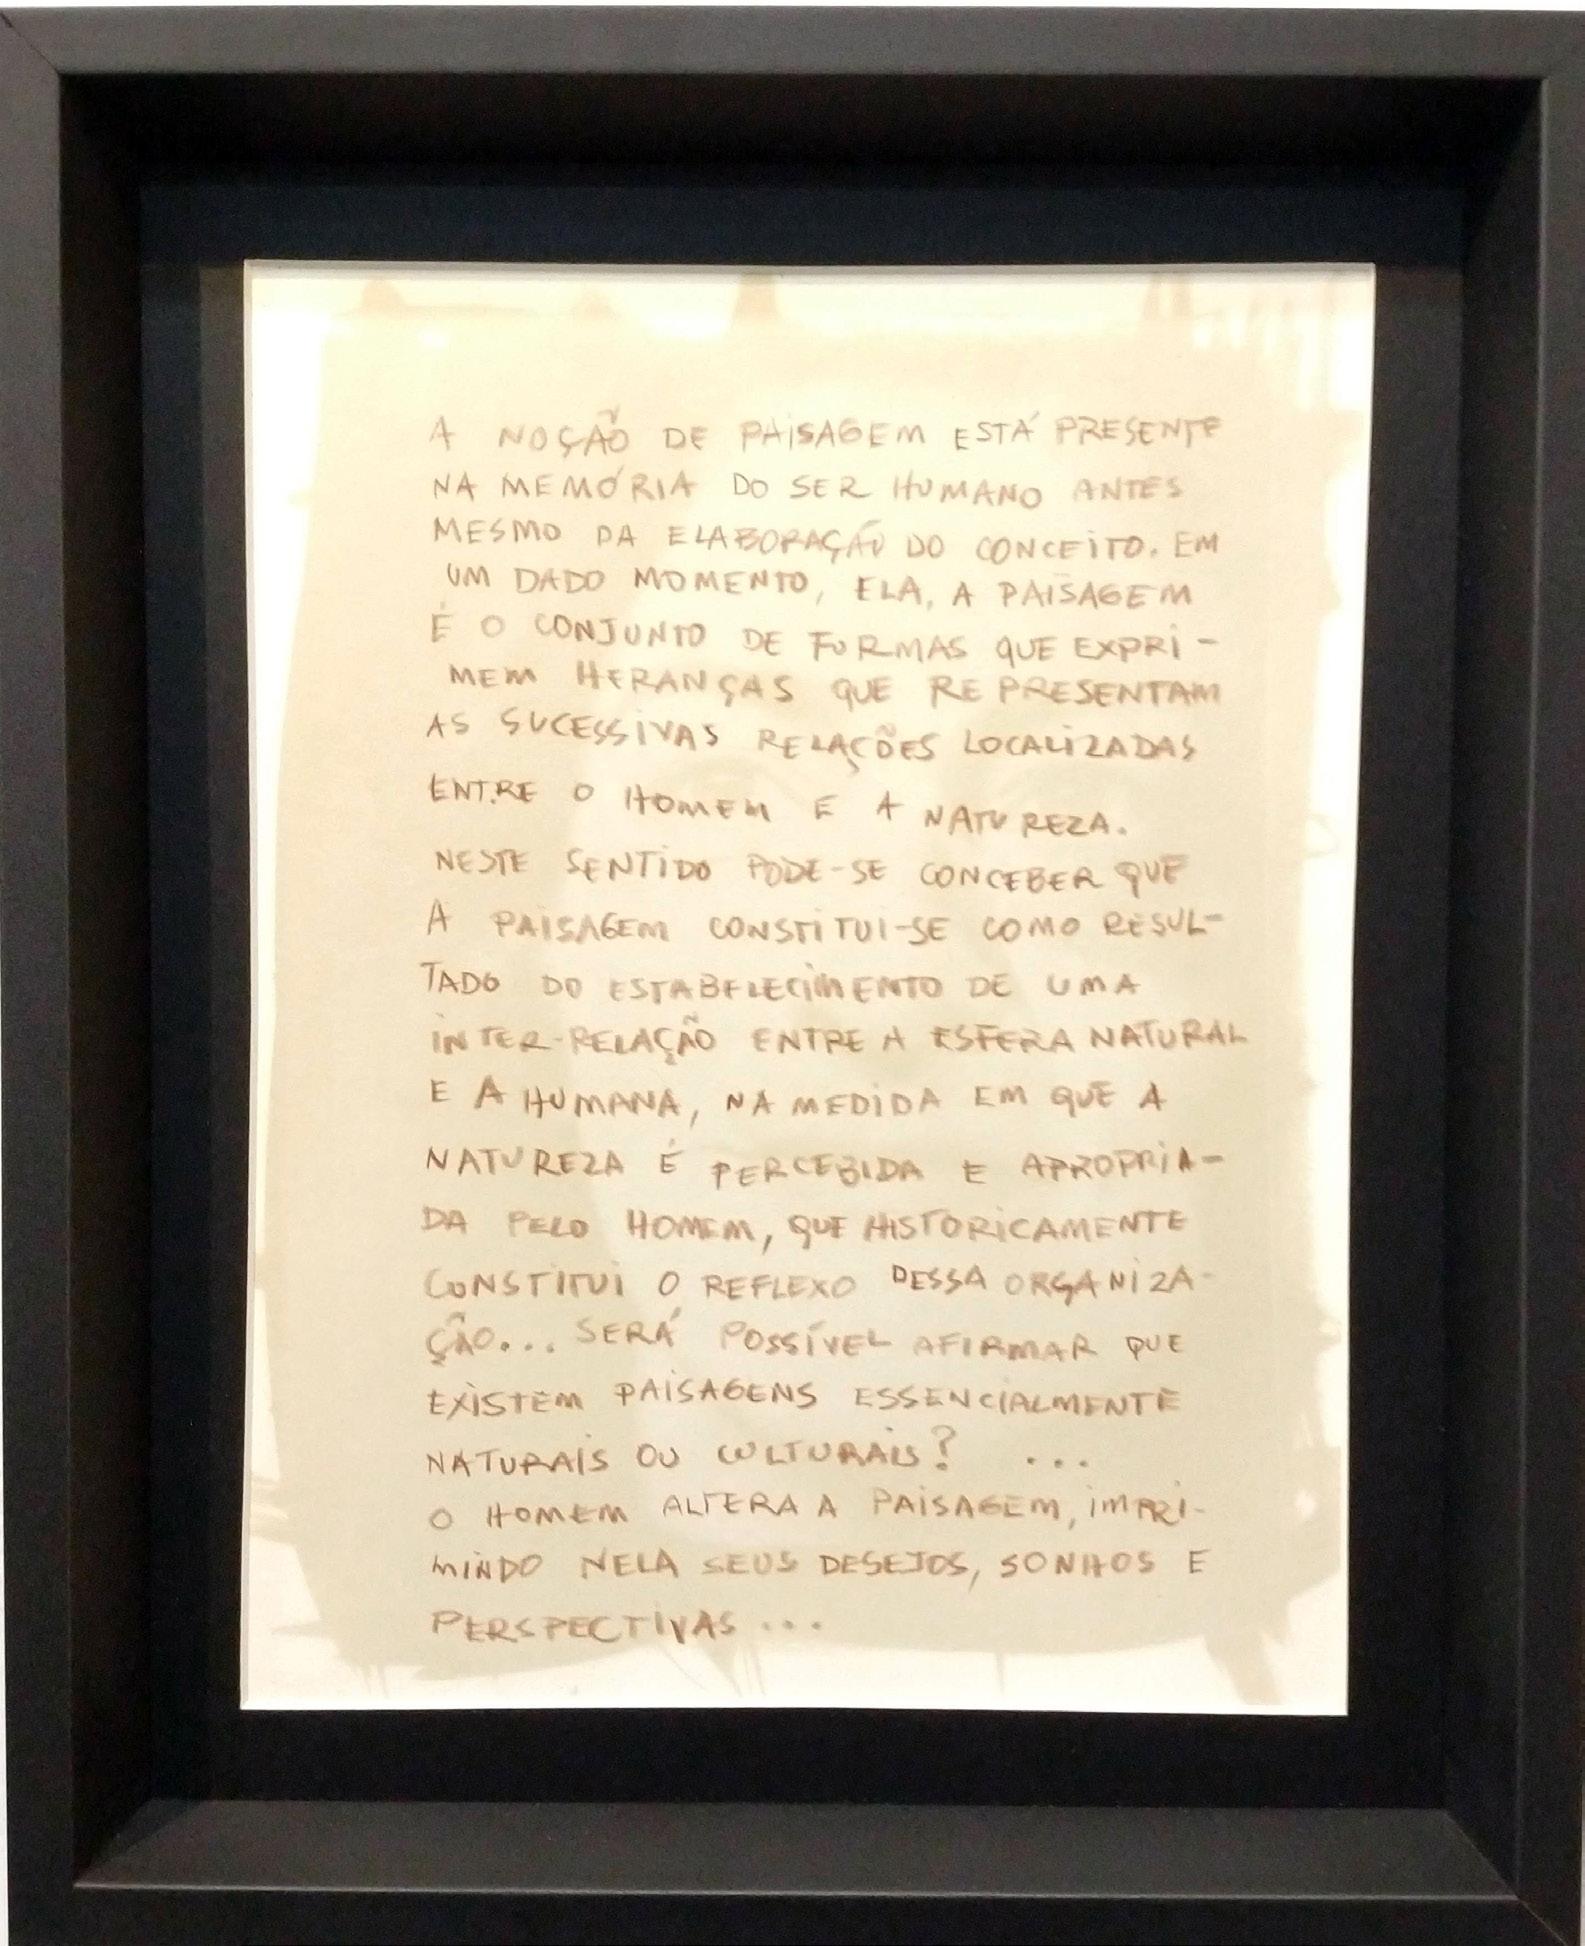 A NOÇÃO DE PAISAGEM ESTÁ PRESENTE
NA MEMÓRIA DO SER HUMANO ANTES
MESMO DA ELABORAÇÃO DO CONCEITO. EM
UM DADO MOMENTO, ELA, A PAISAGEM
É O CONJUNTO DE FORMAS QUE EXPRI-
MEM HERANÇAS QUE REPRESENTAM
AS SUCESSIVAS RELAÇÕES LOCALIZADAS
ENTRE O HOMEM E A NATUREZA.
NESTE SENTIDO PODE-SE CONCEBER QUE
A PAISAGEM CONSTITUI-SE COMO RESUL-
TADO DO ESTABELECIMENTO DE UMA
INTER-RELAÇÃO ENTRE A ESFERA NATURAL
E A HUMANA, NA MEDIDA EM QUE A
NATUREZA É PERCEBIDA E APROPRIA-
DA PELO HOMEM, QUE HISTORICAMENTE
CONSTITUI O REFLEXO DESSA ORGANIZA-
ÇÃO... SERÁ POSSÍVEL AFIRMAR QUE
EXISTEM PAISAGENS ESSENCIALMENTE
NATURAIS OU CULTURAIS? ...
O HOMEM ALTERA A PAISAGEM, IMPRI-
MINDO NELA SEUS DESEJOS, SONHOS E
PERSPECTIVAS...